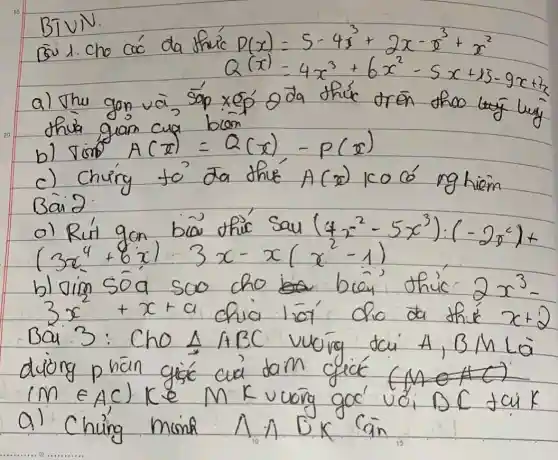 BTVN.
Bài 1. cho các đa thức P(x) = 5 - 4x³ + 2x - x³ + x²
Q(x) = 4x³ + 6x² - 5x + 15 - 9x + 7x
a) Thu gọn và sắp xếp 2 đa thức trên theo luỹ
thừa giảm của biến
b) Tính A(x) = Q(x) - P(x)
c) Chứng tỏ đa thức A(x) ko có nghiệm
Bài 2:
a) Rút gọn biểu thức sau (4x² - 5x³) : (-2x²) +
(3x⁴ + 6x) : 3x - x(x² - 1)
b) Tìm số a sao cho biểu thức 2x³ -
3x² + x + a chia hết cho đa thức x + 2
Bài 3: Cho Δ ABC vuông tại A, BM là
đường phân giác của tam giác (M ∈ AC)
(M ∈ AC) Kẻ MK vuông góc với BC tại K
a) Chứng minh Δ ABK cân